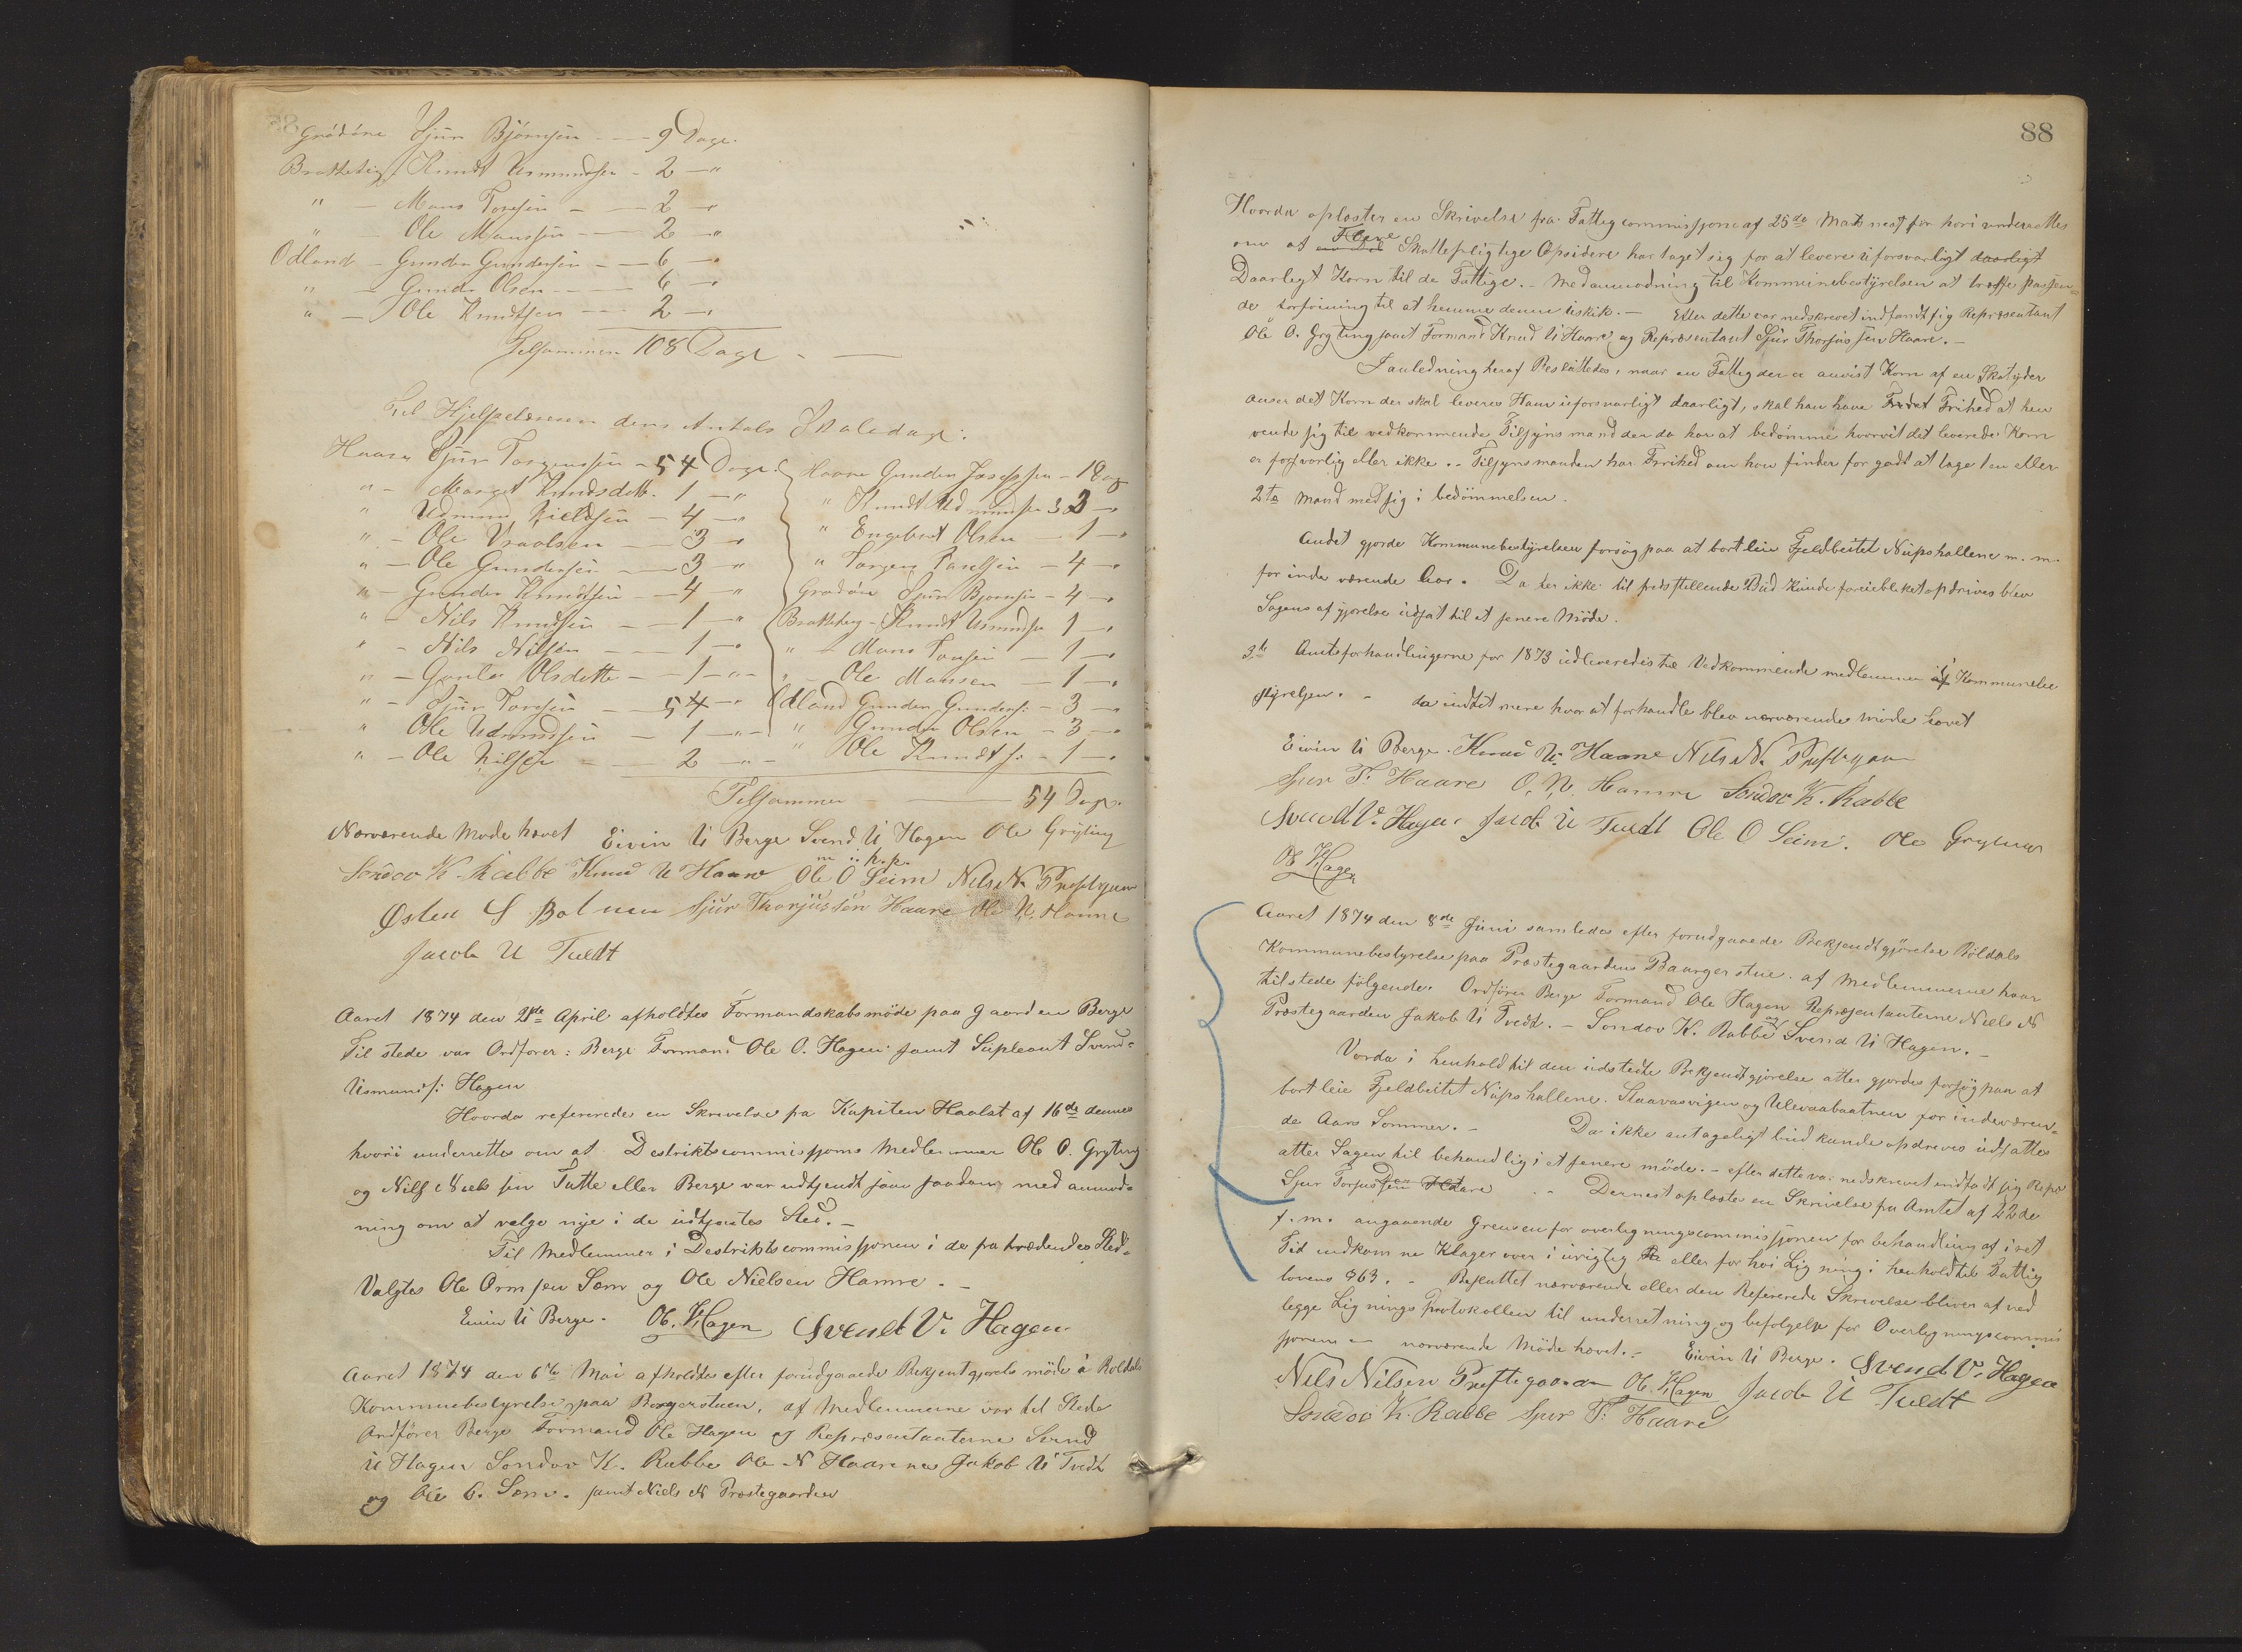 Grødöne Sjur Bjørnsen — 9 Dage.
Bratteteig Knudt Usmundsen - 2 — "
" — Mons Torsen — 2 — "
" — Ole Monssen — 2 — "
Odland - Gunder Gundersen — 6 — "
" — Gunder Olsen — 6 — "
" — Ole Knudtsen — 2 — "
Tilsammen 108 Dage. —
Til Hjelpelæreren dens Antals Skoledage:
Haare Sjur Torgeussen - 54 Dage.
" - Marget Knudsdtt. 1 — "
" Udmund Kieldsen — 4 — "
" - Ole Vraalsen — 3 — "
" - Ole Gundersen — 3 — "
" - Gunder Knudtsen — 4 — "
" - Nils Knudtsen — 1 — "
" - Nils Nilsen — 1 — "
" - Gunla Olsdatter — 1 — "
" - Sjur Torsen — 54 — "
" Ole Udmundsen — 1 — "
" - Ole Nilsen — 2 — "
Haare Gunder Josepsen - 1 Dag
" Knudt Udmundsen 3 3 — "
" Engebret Olsen — 1 — "
" Torgeu Tarelsen — 4 — "
Grødöne Sjur Bjørnsen - 4 — "
Bratteteig - Knudt Usmundsen 1 — "
" - Mons Torsen — 1 — "
" - Ole Monsen — 1 — "
Odland Gunder Gunders: - 3 — "
" Gunder Olsen - 3 — "
" Ole Knudts: - 1 — "
Tilsammen — 54 Dage.
Nærværende Møde hævet Eivin U Berge Svend U Hagen Ole Gryting
m. i: h. p.
Sondov K Rabbe Knud U Haare Ole O Seim Nils N. Prestgaar
Østen S Botnen Sjur Thorjussön Haare Ole N. Hamre
Jacob U Tvedt
Aaret 1874 den 21de April afholdtes Formandskabsmöde paa gaarden Berge
Til stede var Ordfører: Berge Formand Ole O. Hagen samt Supleant Svend-
Usmunds: Hagen
Hvorda refererede en Skrivelse fra Kapiten Haalst af 16de dennes
hvori underrettes om at Destriktscommisjons Medlemmer Ole O. Gryting
og Nils Nielssen Tutte eller Berge var udtjendt som saadan med anmod-
ning om at valge nye i de udtjentes Sted. —
Til Medlemmer i Destriktscommissjonen i de fratrædendes Sted-
Valgtes Ole Ormsen Sæm og Ole Nielsen Hamre. —
Eivin U Berge. Ob. Hagen Svendt V. Hagen
Aaret 1874 den 6te Mai afholdtes efter forudgaaede Bekjentgjørels möde i Röldals
Kommunebestyrelse paa Borgerstuen, af Medlemmerne var til Stede
Ordfører Berge Formand Ole Hagen og Repræsentanterne Svend
U Hagen Sondov K. Rabbe Ole N Haarene Jakob U Tvedt
og Ole O. Sæm. samt Niels N Præstegaarden
88
Hvorda oplæstes en Skrivelse fra Fattigcommissjone af 25de Marts nest før hvori underrettes
om at Flere Skattepligtige Opsidere har taget sig for at levere uforsvarligt daarligt
Daarligt Korn til de Fattige. - Med anmodning til Kommunebestyrelsen at træffe passen-
de forføining til at hemme denne uskik. — Efter dette var nedskrevet indfandt sig Representant
Ole O. Gryting samt Formand Knud U Haare og Representant Sjur Thorjussen Haare. —
I anledning heraf Besluttedes, naar en Fattig der er anvist Korn af en Skatyder
anser det Korn der skal leveres Ham uforsvarligt daarligt, skal han have Fridet Frihed at hen
vende sig til vedkommende Tilsynsmand der da har at bedømme hvorvit det leverede Korn
er forsvarlig eller ikke. - Tilsynsmanden har Frihed om han finder for godt at tage 1 en eller
2to mand med sig i bedömmelsen.
Andet gjorde Kommunebestyrelsen forsög paa at bortleie Fjeldbeitet Nupshallene m. m.
for inde værende Aar. Da der ikke tilfredsstillende Bud kunde foreieblket opdrives blev
Sagens afgjørelse udsat til et senere Möde.
3de Amtsforhandlingerne for 1873 udleveredes til Vedkommende medlemmer af Kommunebe
styrelsen. - da indtet mere hvor at forhandle blev nærværende möde hævet
Eivin U Berge. Knud U. Haare Nils N. Prestgaar
Sjur T. Haare O. N. Hamre Sondov K. Rabbe
Svendt V. Hagen Jacob U Tvedt Ole O Seim. Ole Gryting
Ob Hagen
Aaret 1874 den 8de Juni samledes efter forudgaaede Bekjendtgjörelse Röldals
Kommunebestyrelse paa Præstegaardens Baargerstue. af Medlemmerne haar
tilstede følgende. Ordfører Berge Formand Ole Hagen Representanterne Niels N
Præstegaarden Jakob U Tvedt. - Sondov K. Rabbe og Svend U Hagen. —
Vorda i henhold til den udstedte Bekjendtgjörelse atter gjordes forsög paa at
bortleie Fjeldbeitet Nupshallene. Staavasvigen og Ulevaabaatnen for indeværen-
de Aars Sommer. — Da ikke antageligt bud kunde opdreves udsattes
atter Sagen til behandlig i et senere möde. - efter dette var nedskrevet indfadt sig Repr
Sjur Torjussen Haare .. Dernest oplæste en Skrivelse fra Amtet af 22de
f. m. angaaende Grensen for overligningscommissjonen for behandling af i ret
Tid indkomne Klager over i urigtig eller for höi Ligning i henhold til Fattig
lovens § 63. - Besluttet nærværende eller den Refererede Skrivelse bliver at ved
legge Lignings Protokollen til underretning og befølgelse for Overligningscommis
sjonen — nærværende Möde hævet. - Eivin U Berge. Svendt V. Hagen
Nils Nilsen Prestegaarden Ob. Hagen Jacob U Tvedt
Sondov K. Rabbe Sjur T. Haare